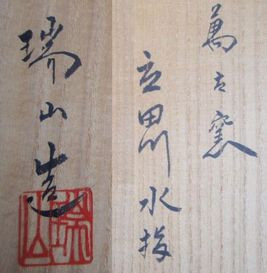 萬古窯
立田川水指
瑞山造
瑞山